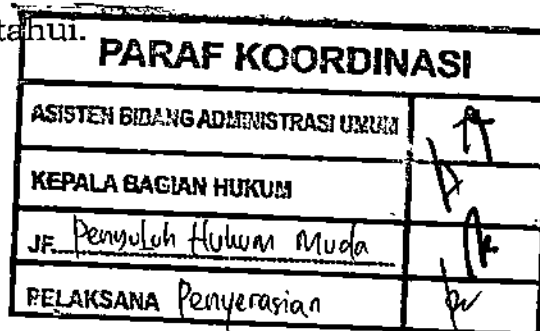 tahui.
PARAF KOORDINASI
ASISTEN BIDANG ADMINISTRASI UMUM
KEPALA BAGIAN HUKUM
JF. Penyuluh Hukum Muda
PELAKSANA Penyerasian